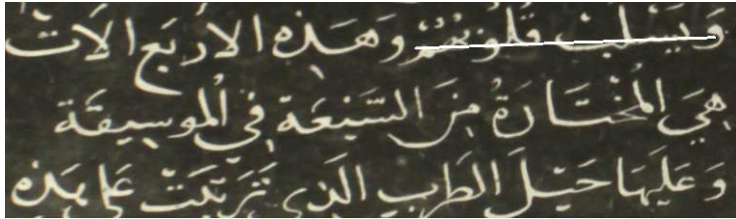 وَيَسْلُبْ قُلُوبَهُمْ وَهَذِهِ الارْبَع الآت
هِيَ الْمُخْتَارَةُ مِنَ السَّبْعَة فِي الْمُوسِيقَة
وَعَلَيهَا حَيْلَ الطَرَب الَّذِي تَرَتَّبَتْ عَلى هَذِه